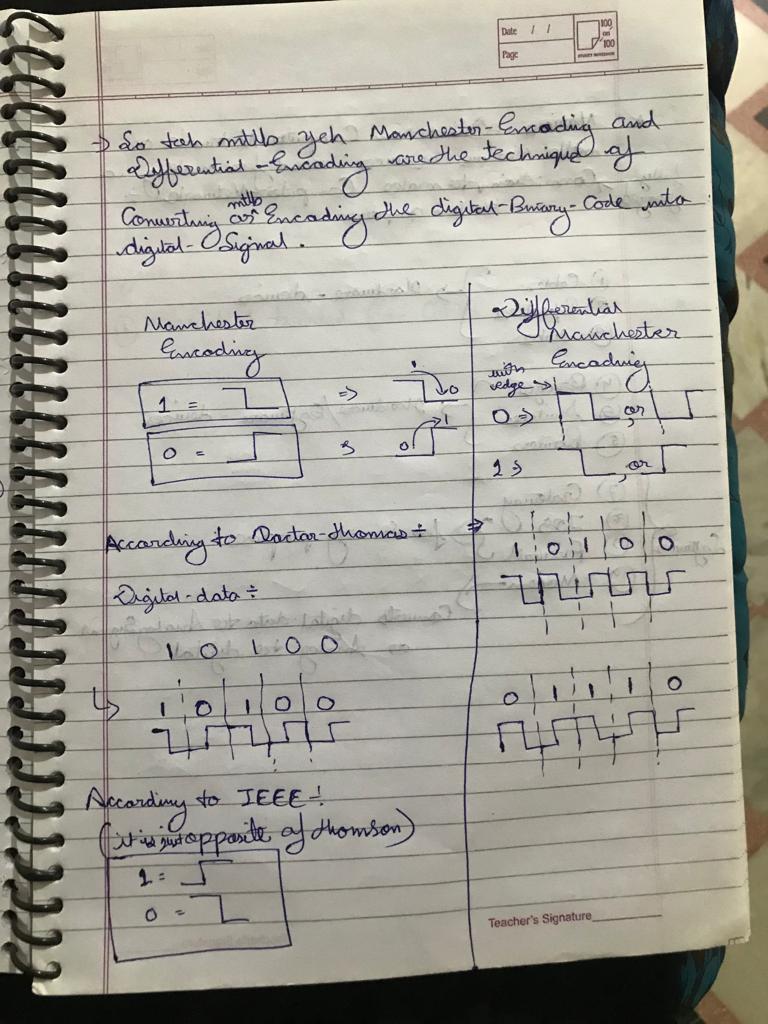 Date / /
Page
100
on
100
→ So toh mtlb yeh Manchester-Encoding and
Differential-Encoding are the technique of
mtlb
Converting as Encoding the digital-Binary-Code into
digital-Signal.
Manchester
Encoding
1 =
⇒ 1 0
0 =
0 1
According to Doctor-thomas ÷
Digital-data ÷
1 0 1 0 0
1 0 1 0 0
According to IEEE ÷
(it is just opposite of thomson)
1 =
0 =
Differential
Manchester
Encoding
with
edge →
0 ⇒ , or
1 , or
⇒
1 0 1 0 0
0 1 1 1 0
Teacher's Signature